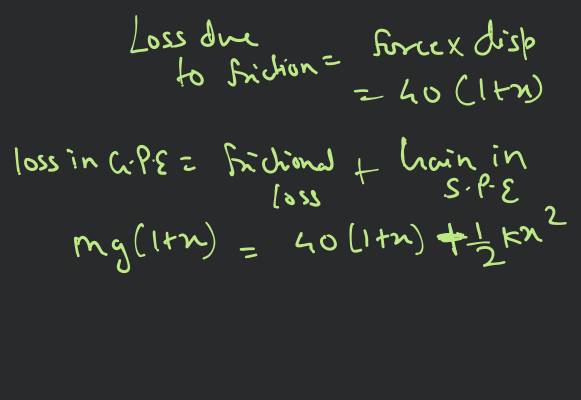 Loss due
to friction = force x disp
= 40 (1+x)
loss in G.P.E = frictional loss + Gain in S.P.E
mg(1+x) = 40(1+x) + 1/2 kx²